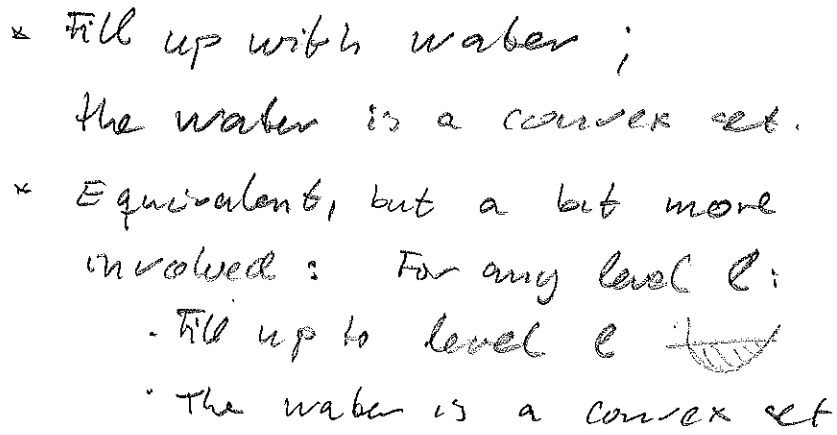 * Fill up with water;
the water is a convex set.
* Equivalent, but a bit more
involved: For any level l:
· Fill up to level l
· The water is a convex set